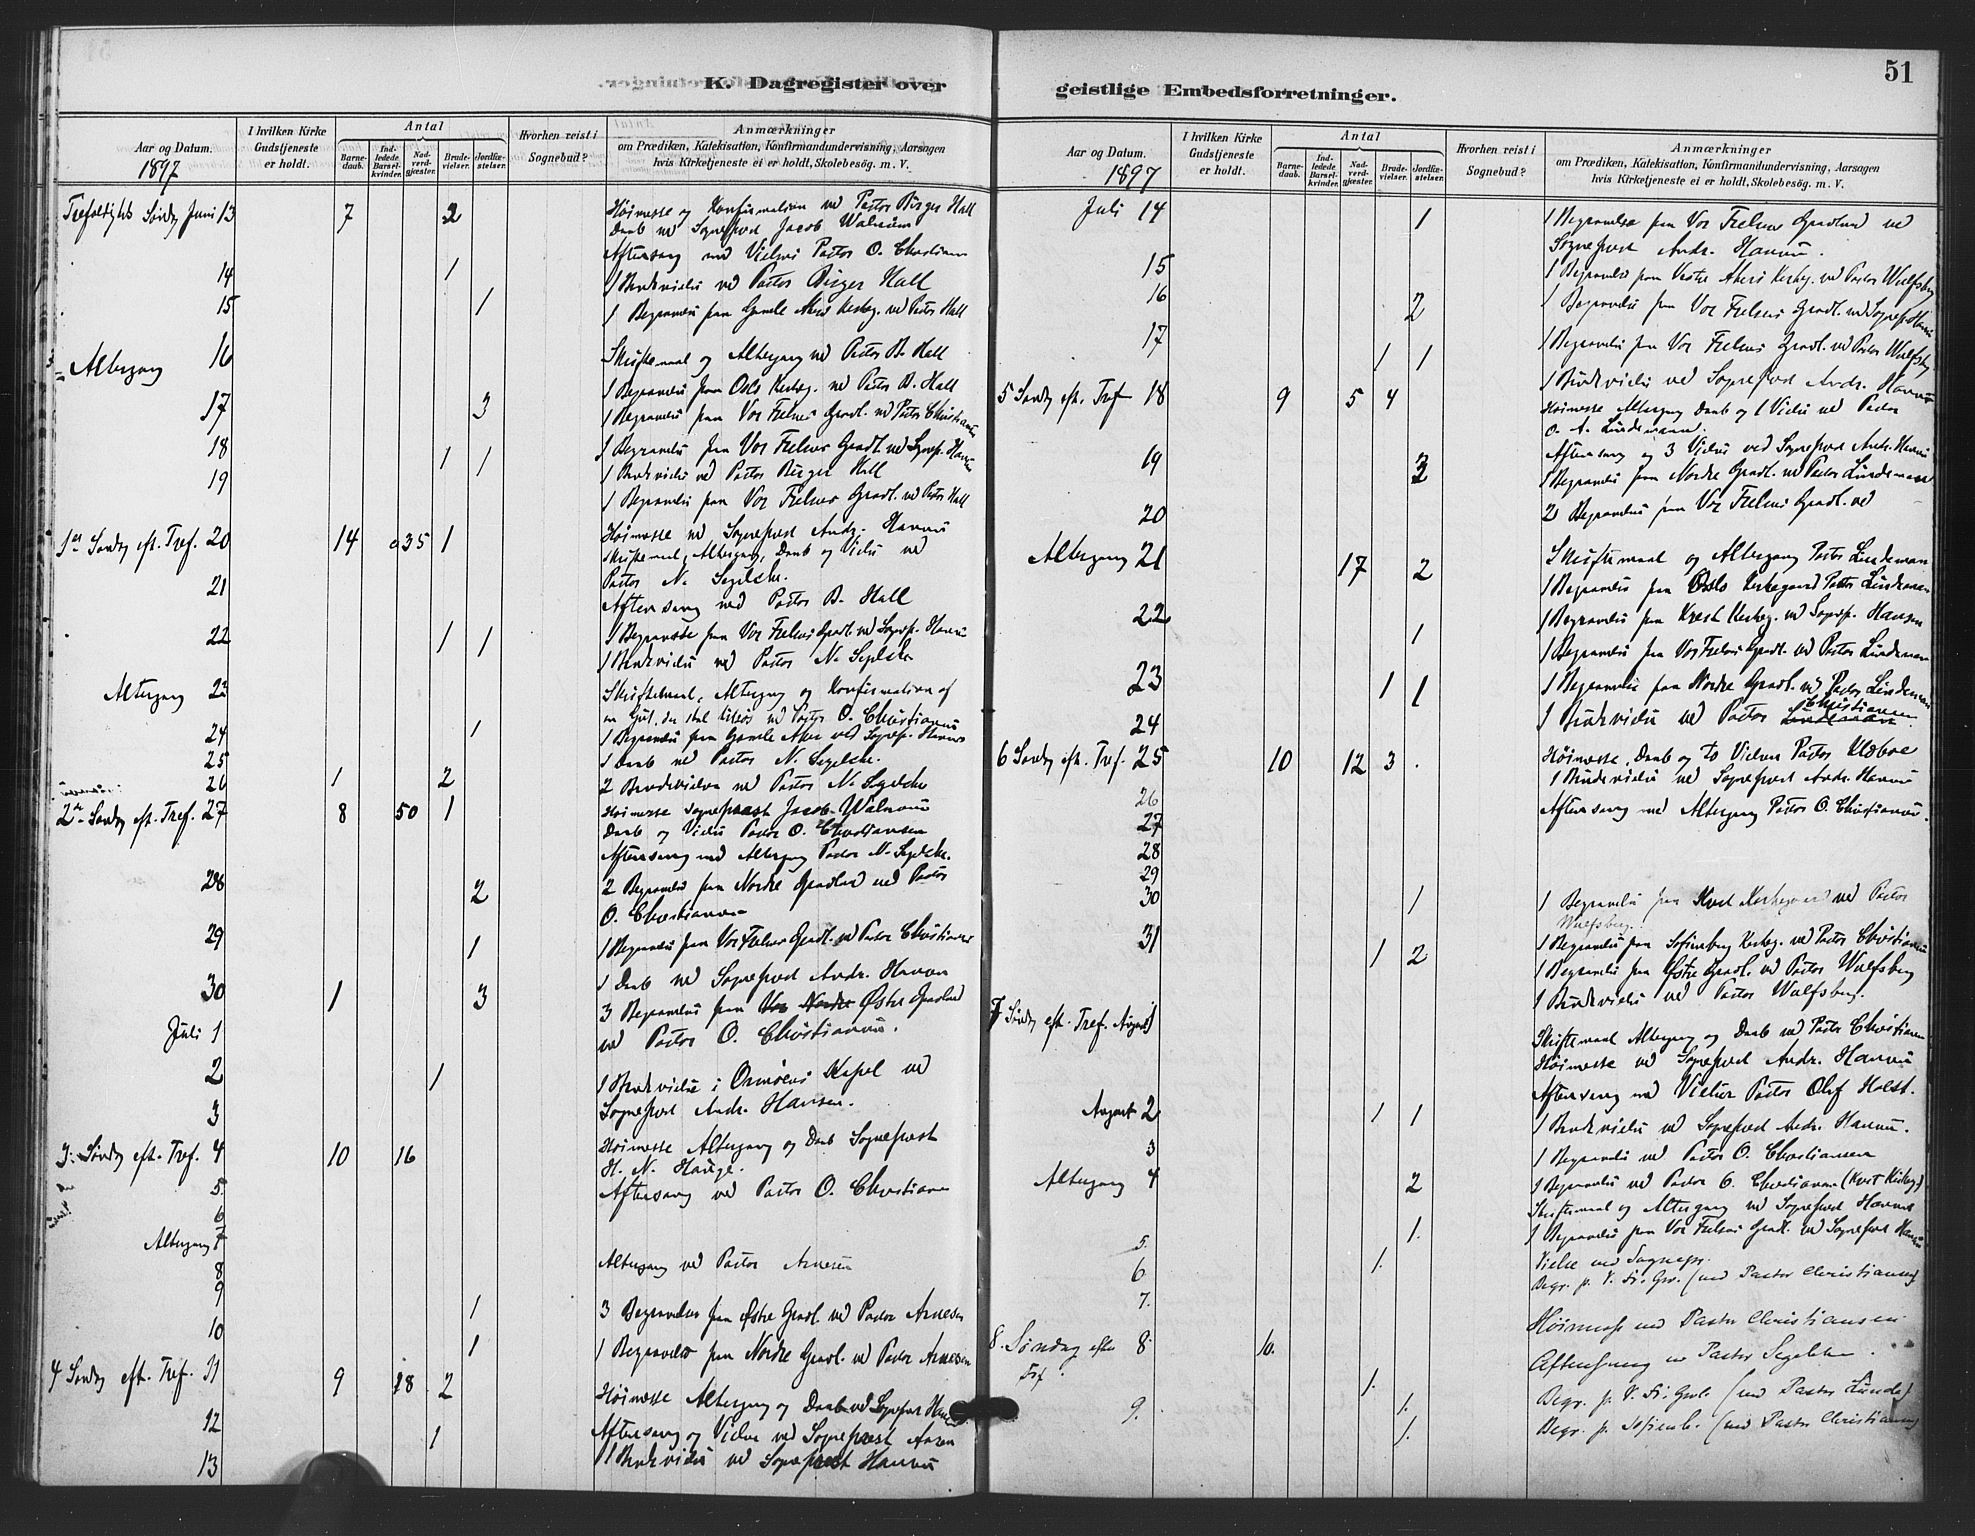 K. Dagregister over
Aar og Datum.
1897
I hvilken Kirke Gudstjeneste er holdt.
Antal
Barnedaab.
Indledede Barselkvinder.
Nadverdgjæster.
Brudevielser.
Jordfæstelser.
Hvorhen reist i Sognebud?
Anmærkninger
om Prædiken, Katekisation, Konfirmandundervisning, Aarsagen
hvis Kirketjeneste ei er holdt, Skolebesög. m. V.
Trefoldigheds Søndag Juni 13 7 2 Høimesse og Konfirmation ved Pastor Birger Hall
Daab ved Sogneprest Jacob Walnum
Aftensang med Vielser Pastor O. Christiansen
14 1 1 Brudevielse ved Pastor Birger Hall
15 1 1 Begravelse fra Gamle Akers Kirkeg. ved Pastor Hall
Altergang 16 Skriftemaal og Altergang ved Pastor B. Hall
1 Begravelse fra Oslo Kirkeg. ved Pastor B. Hall
17 3 1 Begravelse fra Vor Frelsers Gravl. ved Pastor Christiansen
18 1 1 1 Begravelse fra Vor Frelsers Gravl. ved Sognep. Hansen
1 Brudevielse ved Pastor Birger Hall
19 1 Begravelse fra Vor Frelsers Gravl. ved Pastor Hall
1ste Søndag eft. Tref. 20 14 35 1 Høimesse ved Sogneprest Andr. Hansen
Skriftemaal, Altergang, Daab og Vielse ved
Pastor N. Segelcke.
21 Aftensang ved Pastor B. Hall
22 1 1 1 Begravelse fra Vor Frelsers Gravl. ved Sognep. Hansen
1 Brudevielse ved Pastor N. Segelcke
Altergang 23 Skriftemaal, Altergang og Konfirmation af
en Gut, der skal tilsøs ved Pastor O. Christiansen
24 1 1 Begravelse fra Gamle Aker ved Sognep. Hansen
25 1 Daab ved Pastor N. Segelcke.
26 1 2 2 Brudevielser ved Pastor N. Segelcke
2den Søndag eft. Tref. 27 8 50 1 Høimesse Sogneprest Jacob Walnum
Daab og Vielse Pastor O. Christiansen
Aftensang med Altergang Pastor N. Segelcke.
28 2 2 Begravelse fra Nordre Gravlund ved Pastor
O. Christiansen
29 1 1 Begravelse fra Vor Frelsers Gravl. ved Pastor Christiansen
1 Daab ved Sogneprest Andr. Hansen
30 1 3 3 Begravelse fra Vor Nordre Østre Gravlund
Juli 1 ved Pastor O. Christiansen.
2 1 1 Brudevielse i Ormøens Kapel ved
3 Sogneprest Andr. Hansen.
3. Søndag eft. Tref. 4 10 16 Høimesse Altergang og Daab Sogneprest
H. N. Hauge.
5 Aftensang ved Pastor O. Christiansen
6
Altergang 7 Altergang ved Pastor Arnesen
8
9 1 3 Begravelser fra Østre Gravl. ved Pastor Arnesen
10 1 1 Begravelse fra Nordre Gravl. ved Pastor Arnesen
4 Søndag eft. Tref. 11 9 18 2 Høimesse Altergang og Daab ved Sogneprest Hansen
12 1 Aftensang og Vielse ved Sogneprest Aasen
13 1 Brudevielse ved Sogneprest Hansen
geistlige Embedsforretninger.
51
Aar og Datum.
1897
I hvilken Kirke Gudstjeneste er holdt.
Antal
Barnedaab.
Indledede Barselkvinder.
Nadverdgjæster.
Brudevielser.
Jordfæstelser.
Hvorhen reist i Sognebud?
Anmærkninger
om Prædiken, Katekisation, Konfirmandundervisning, Aarsagen
hvis Kirketjeneste ei er holdt, Skolebesög. m. V.
Juli 14 1 1 Begravelse fra Vor Frelsers Gravlund ved
Sogneprest Andr. Hansen.
15 1 Begravelse fra Vestre Akers Kirkeg. ved Pastor Wulfsberg
16 2 1 Begravelse fra Vor Frelsers Gravl. ved Sognep. Hansen
17 1 1 1 Begravelse fra Vor Frelsers Gravl. ved Pastor Wulfsberg
1 Brudevielse ved Sogneprest Andr. Hansen
5 Søndag eft. Tref 18 9 5 4 Høimesse Altergang Daab og 1 Vielse ved Pastor
O. A. Lindemann.
Aftensang og 3 Vielser ved Sogneprest Andr. Hansen
19 3 1 Begravelse fra Nordre Gravl. ved Pastor Lindemann
20 2 Begravelse fra Vor Frelsers Gravl. ved
Altergang 21 17 2 Skriftemaal og Altergang Pastor Lindeman
1 Begravelse fra Oslo Kirkegaard Pastor Lindeman
22 1 1 Begravelse fra Krist Kirkeg. ved Sognep. Hansen
1 Begravelse fra Vor Frelsers Gravl. ved Pastor Lindeman
23 1 1 1 Begravelse fra Nordre Gravl. ved Pastor Lindeman
24 1 Brudevielse ved Pastor Lindeman Christiansen
6 Søndag eft. Tref. 25 10 12 3 Høimesse, Daab og to Vielser Pastor Klæboe
1 Brudevielse ved Sogneprest Andr. Hansen
26 Aftensang med Altergang Pastor O. Christiansen.
27
28
29
30 1 1 Begravelse fra Krist Kirkegaard ved Pastor
Wulfsberg.
31 1 2 1 Begravelse fra Sofienberg Kirkeg. ved Pastor Christiansen
1 Begravelse fra Østre Gravl. ved Pastor Wulfsberg
1 Brudevielse ved Pastor Wulfsberg.
7 Søndag eft. Tref. August 1 Skriftemaal Altergang og Daab ved Pastor Christiansen
Høimesse ved Sogneprest Andr. Hansen
Aftensang med Vielser Pastor Olof Holst.
August 2 1 1 1 Brudevielse ved Sogneprest Andr. Hansen.
3 1 Begravelse ved Pastor O. Christiansen
Altergang 4 2 1 Begravelse ved Pastor O. Christiansen (Krist Kirkeg.)
Skriftemaal og Altergang ved Sogneprest Hansen
1. 1 Begravelse fra Vor Frelsers Gravl. ved Sogneprest Hansen
5. 1. Vielse ved Sognepr.
6 Begr. p. V. Fr. Grv. (ved Pastor Christiansen)
7.
8. Søndag efter Tref. 8. 10. Høimesse ved Pastor Christiansen.
Aftensang v Pastor Segelcke.
1. Begr. p. V. Fr. Gravl. (ved Pastor Lunde)
9. 1. 1. Begr. p. Sofienb. (ved Pastor Christiansen)